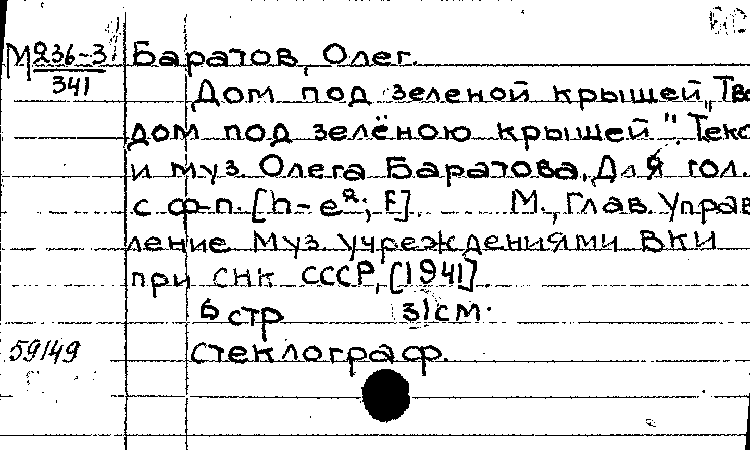 М 236-3 Баратов, Олег.
341
Дом под зеленой крышей „Тво
дом под зелёною крышей". Текс
и муз. Олега Баратова. Для гол.
с ф-п. [h-e²; F]. М., Глав. Управ
ление муз. учреждениями ВКИ
при СНК СССР, [1941].
6 стр 31см.
59149 стеклограф.